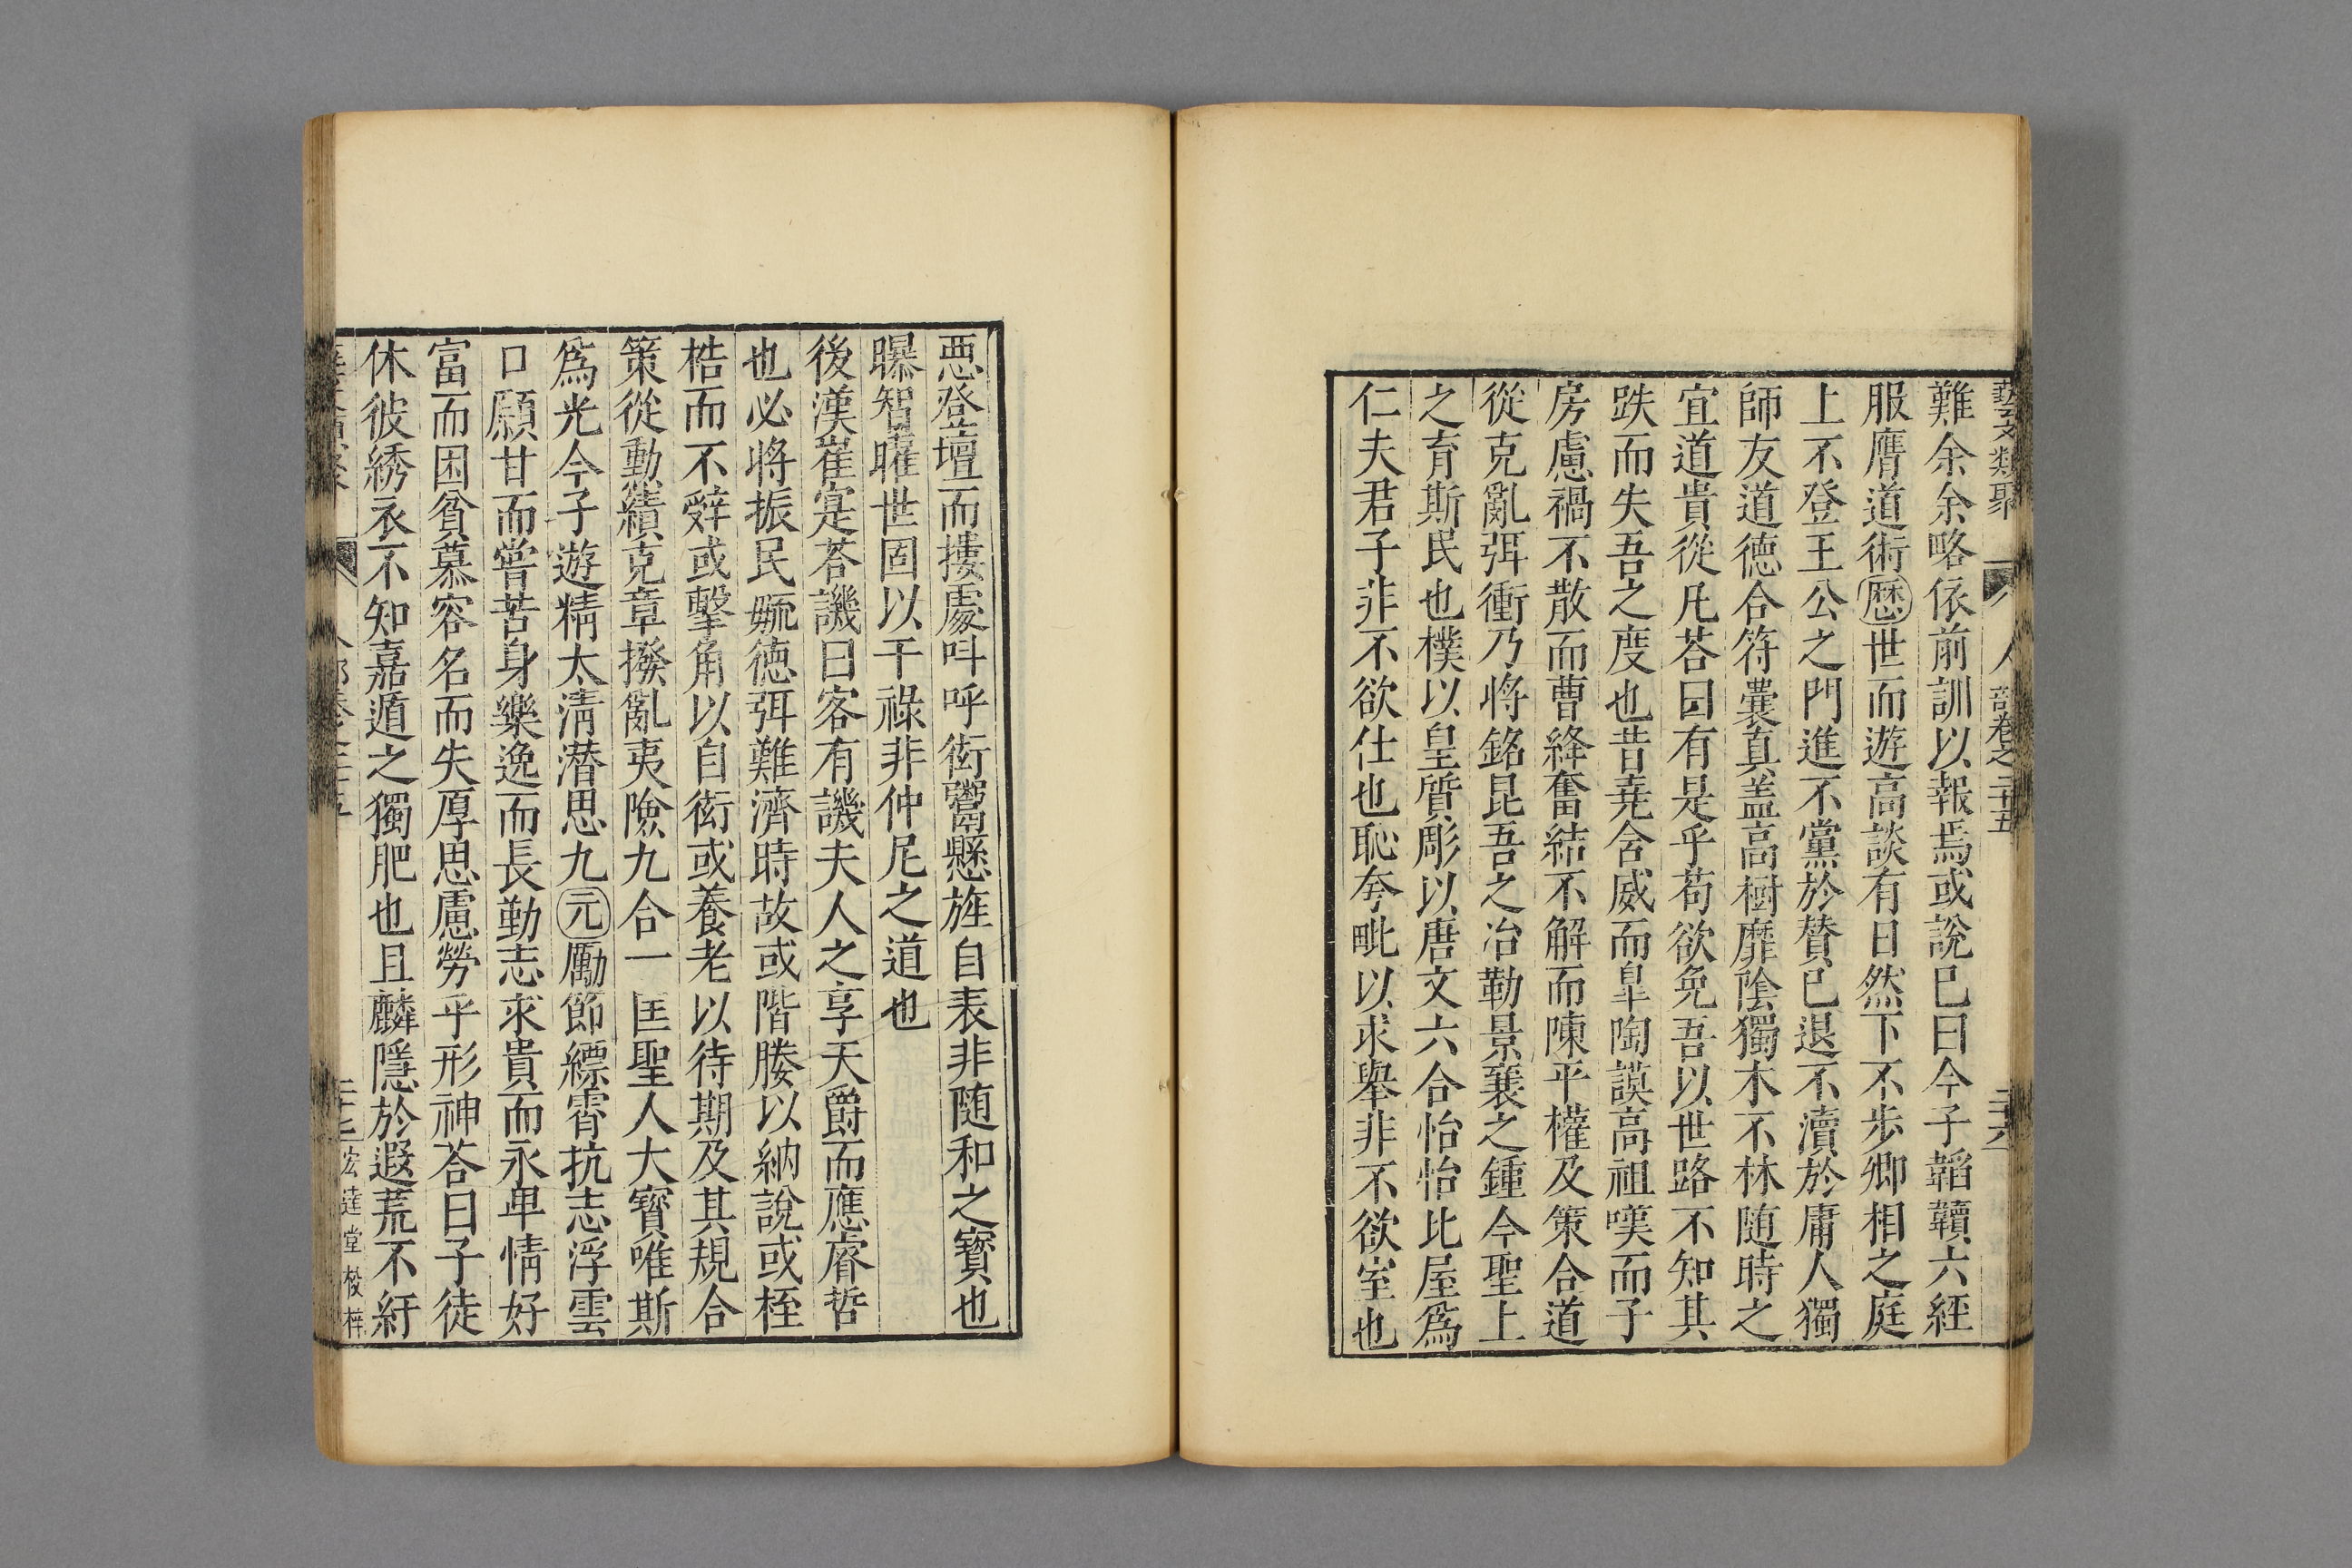 藝文類聚 人部卷之二十五 二十六
難余余略依前訓以報焉或說巳曰今子韜韥六經
服膺道術歷世而遊高談有日然下不步卿相之庭
上不登王公之門進不黨於賛已退不瀆於庸人獨
師友道德合符曩真盖高樹靡陰獨木不林随時之
宜道貴從凡荅曰有是乎苟欲免吾以世路不知其
跌而失吾之度也昔堯舍威而臯陶謨高祖嘆而子
房慮禍不散而曹絳奮結不解而陳平權及策合道
從克亂弭衝乃將銘昆吾之冶勒景襄之鍾今聖上
之育斯民也樸以皇質彫以唐文六合怡怡比屋爲
仁夫君子非不欲仕也恥夸毗以求舉非不欲室也
惡登墻而摟處呌呼衒鬻懸旌自表非随和之寳也
曝智曜世固以干祿非仲尼之道也
後漢崔寔荅譏曰客有譏夫人之享天爵而應睿哲
也必將振民毓德弭難濟時故或階媵以納說或桎
梏而不辤或擊角以自衒或養老以待期及其規合
策從勳績克章撥亂夷險九合一匡聖人大寳唯斯
爲光今子遊精太清潛思九元勵節縹霄抗志浮雲
口願甘而嘗苦身樂逸而長勤志求貴而永卑情好
富而困貧慕容名而失厚思慮勞乎形神荅曰子徒
休彼綉衣不知嘉遁之獨肥也且麟隱於遐荒不紆
人部卷之二十五 二十七 宏達堂校梓